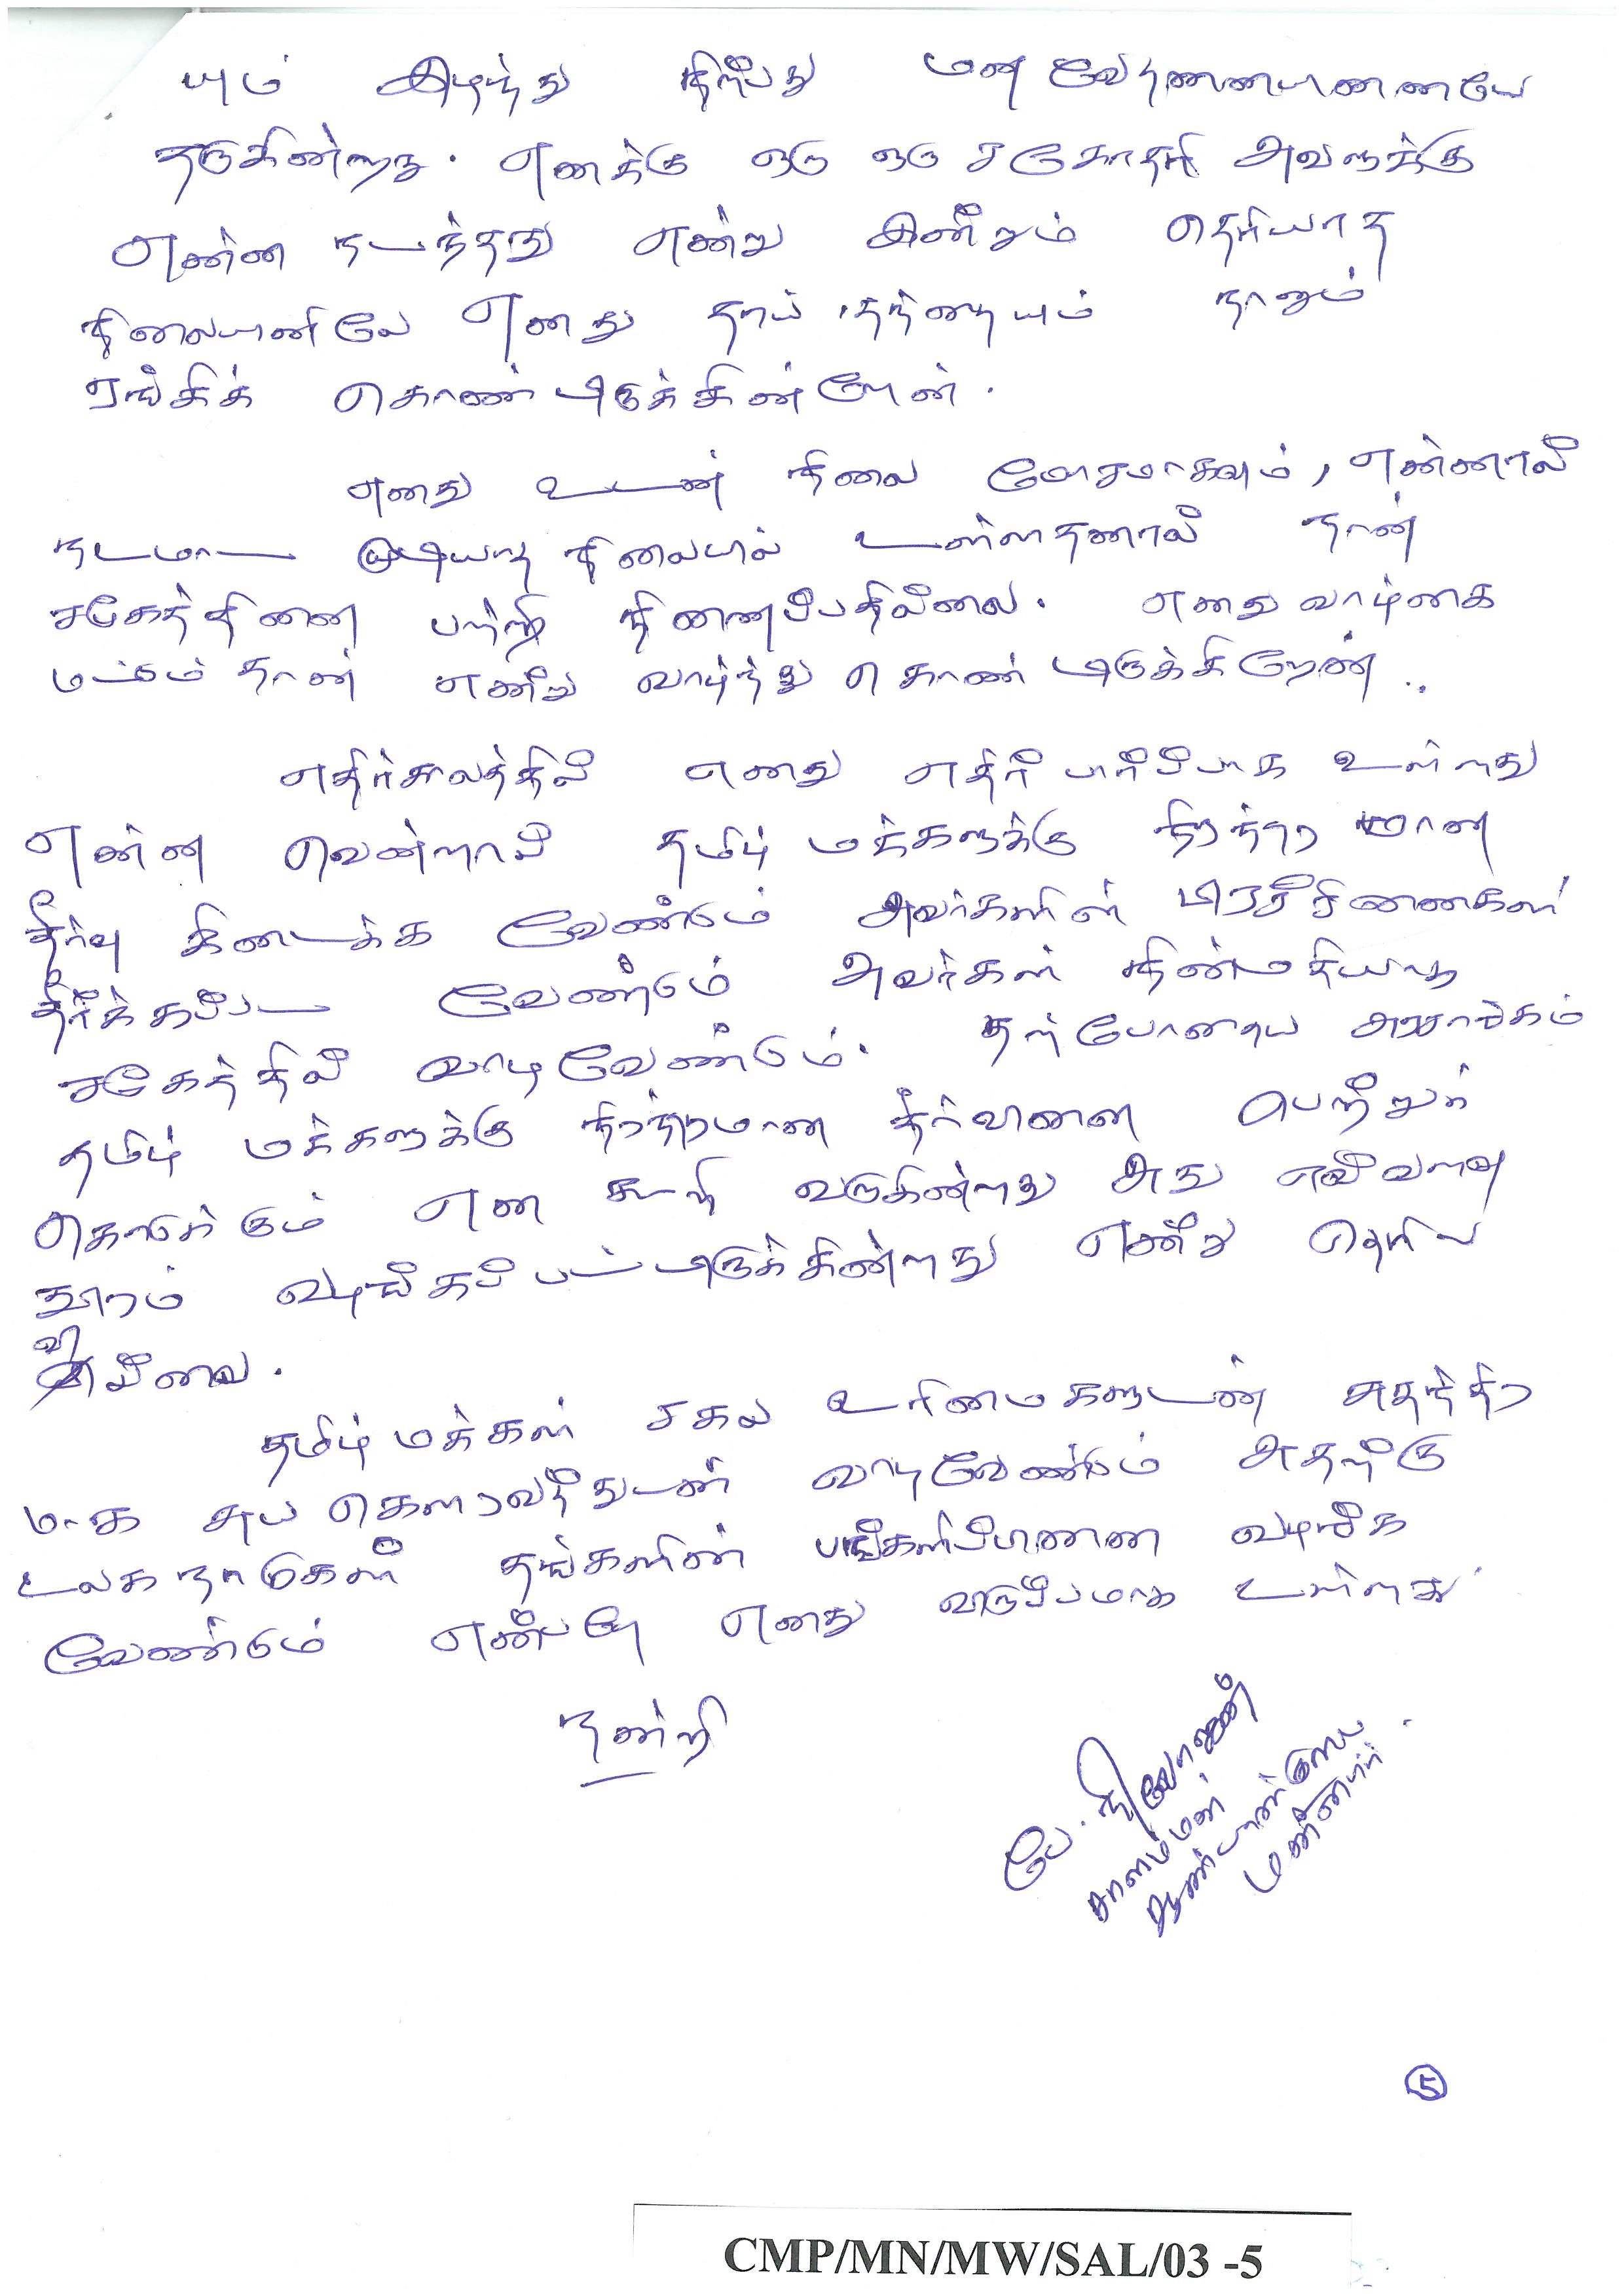 யும் இழந்து நிற்பது மன வேதனையினையே
தருகின்றது. எனக்கு ஒரு ஒரு சகோதரி அவளுக்கு
என்ன நடந்தது என்று இன்றும் தெரியாத
நிலையினிலே எனது தாய் தந்தையும் நானும்
ஏங்கிக் கொண்டிருக்கின்றேன்.
எனது உடன் நிலை மோசமாகவும், என்னால்
நடமாட முடியாத நிலையில் உள்ளதனால் நான்
சமூகத்தினை பற்றி நினைப்பதில்லை. எனது வாழ்கை
மட்டும் தான் என்று வாழ்ந்து கொண்டிருக்கிறேன்..
எதிர்காலத்தில் எனது எதிர்பார்ப்பாக உள்ளது
என்ன வென்றால் தமிழ் மக்களுக்கு நிரந்தரமான
தீர்வு கிடைக்க வேண்டும் அவர்களின் பிரச்சினைகள்
தீர்க்கப்பட வேண்டும் அவர்கள் நின்மதியாக
சமூகத்தில் வாழவேண்டும். தற்போதைய அரசாங்கம்
தமிழ் மக்களுக்கு நிரந்தரமான தீர்வினை பெற்றுக்
கொடுக்கும் என கூறி வருகின்றது அது எவ்வளவு
தூரம் வழங்கப்பட்டிருக்கின்றது என்று தெரிய
வில்லை.
தமிழ் மக்கள் சகல உரிமைகளுடன் சுதந்திர
மாக சுய கௌரவத்துடன் வாழவேண்டும் அதற்கு
உலக நாடுகள் தங்களின் பங்களிப்பினை வழங்க
வேண்டும் என்பதே எனது விருப்பமாக உள்ளது.
நன்றி
பே.
மன்னார்.
5
CMP/MN/MW/SAL/03 -5